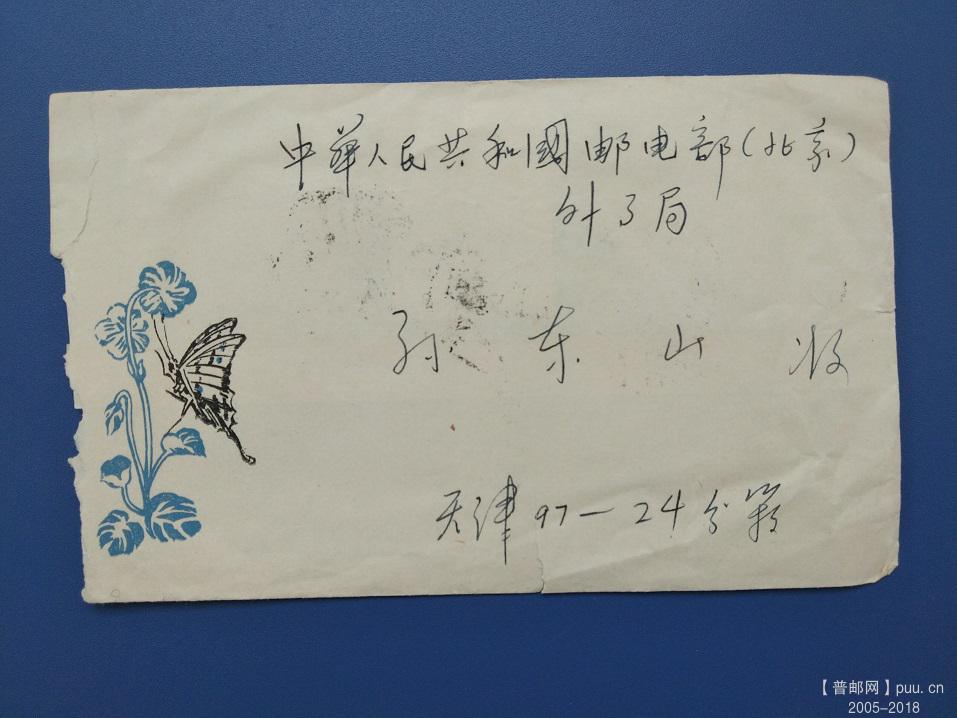 中華人民共和國邮电部(北京)
外事局
孙东山收
天津97-24分箱
【普邮网】puu.cn
2005-2018